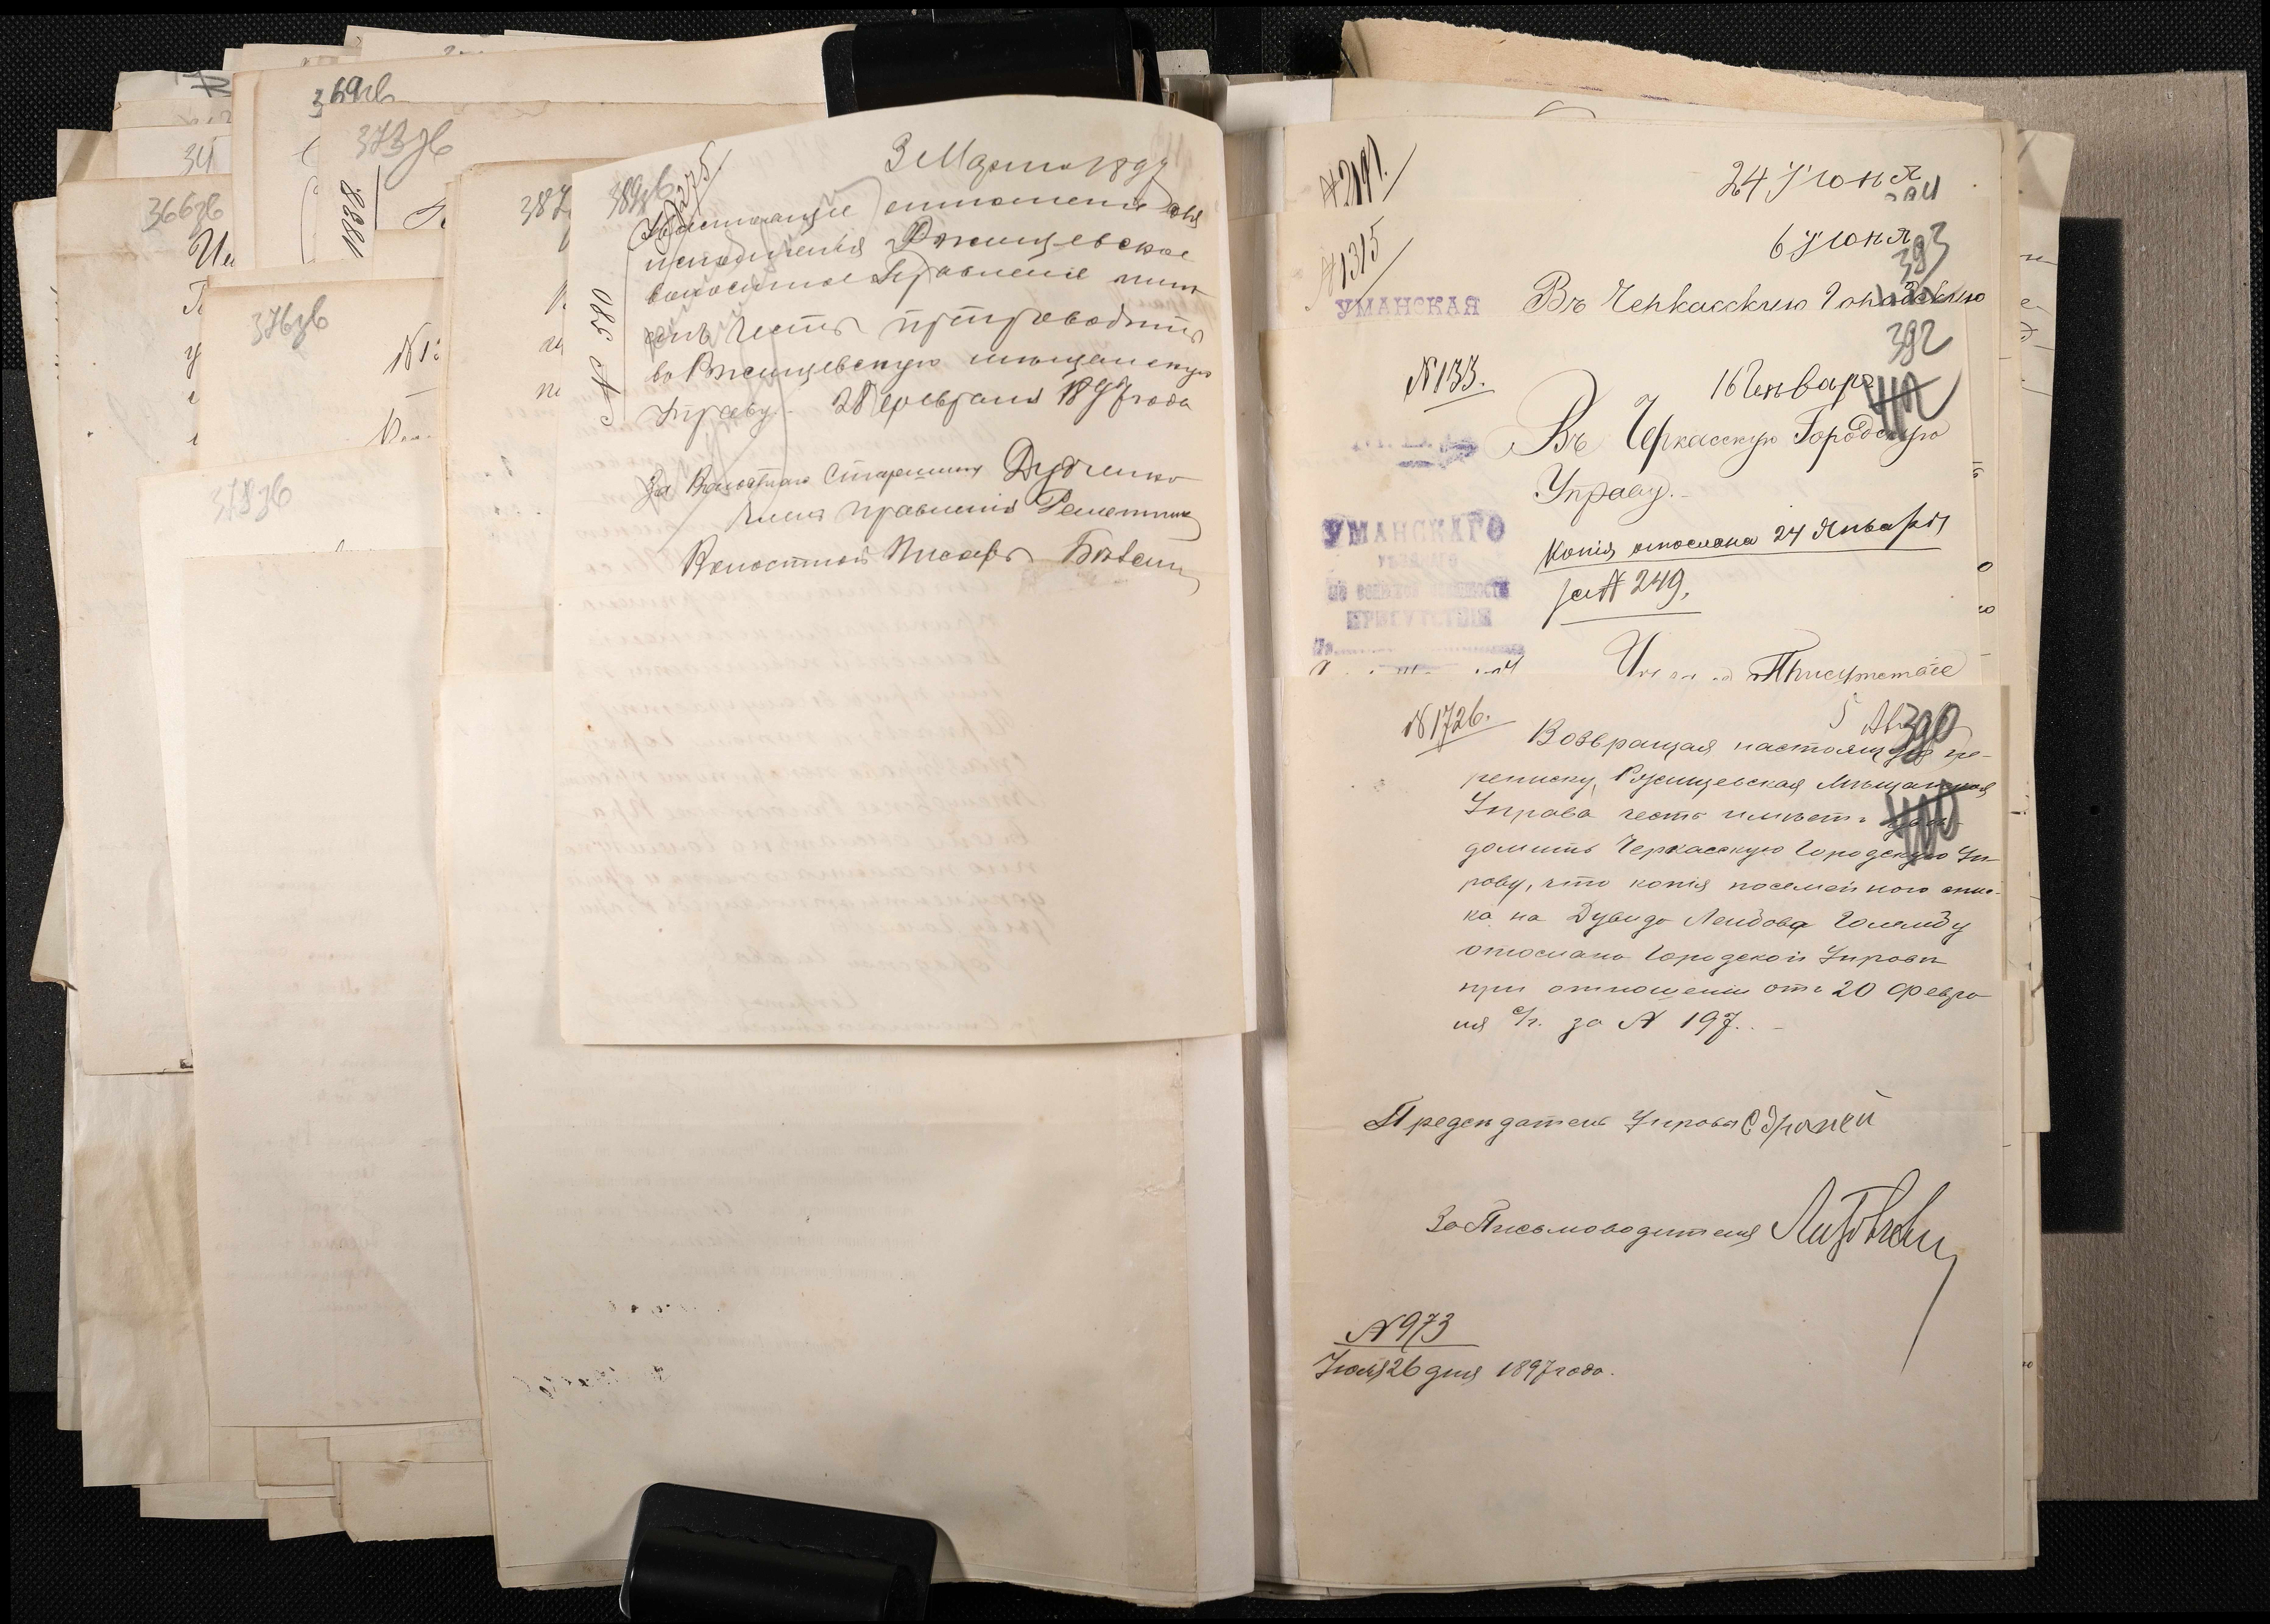 369зв
373зв
34
366зв
376зв
378зв
387
389зв
№ 275.
3 Марта 1897
Настоящее отношение для
исполненія Ржищевское
волостное Правленіе име
етъ честь препроводить
въ Ржищевскую мѣщанскую
Управу. 28 февраля 1897 года
№ 380
За Волостного Старшину Дудченко
Члена правленія
Волостной Писарь
№ 2191.
24 Іюня
394
№ 1315
6 Іюня
393
УМАНСКАЯ
Въ Черкасскую Городскую
392
№ 133.
16 Января
Въ Черкасскую Городскую
Управу.
УМАНСКАГО
УѢЗДНАГО
ПО ВОИНСКОЙ ПОВИННОСТИ
ПРИСУТСТВІЯ
Копія отослана 24 Января
за № 249.
Присутствіе
№ 1726.
5 Авг
390
Возвращая настоящую пе-
реписку, Ржищевская Мѣщанская
Управа честь имѣетъ увѣ-
домить Черкасскую Городскую Уп-
раву, что копія посемейного спис-
ка на Дувида Лейбова Голямбу
отослана Городской Управѣ
при отношеніи отъ 20 Февра-
ля с/г. за № 197.
400
Предсѣдатель Управы
За Письмоводителя
№ 973
Іюля 26 дня 1897 года.